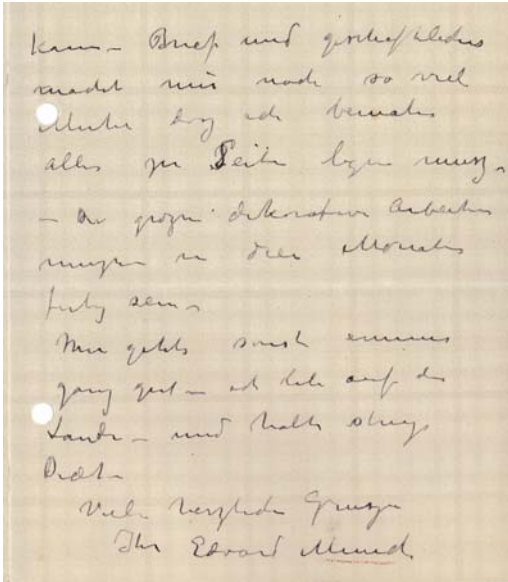 kann – Brief und geschäftliches
macht mir noch so viel
Mühe dasz ich beinahe
alles zur Seite legen musz –
– Die groszen dekorative Arbeiten
müszen in drei Monaten
fertig sein –
Mir gehts sonst
ganz gut – ich lebe auf dem
Lande – und halte strenge
Diæt –
Viele herzliche Grusze
Ihr Edvard Munch